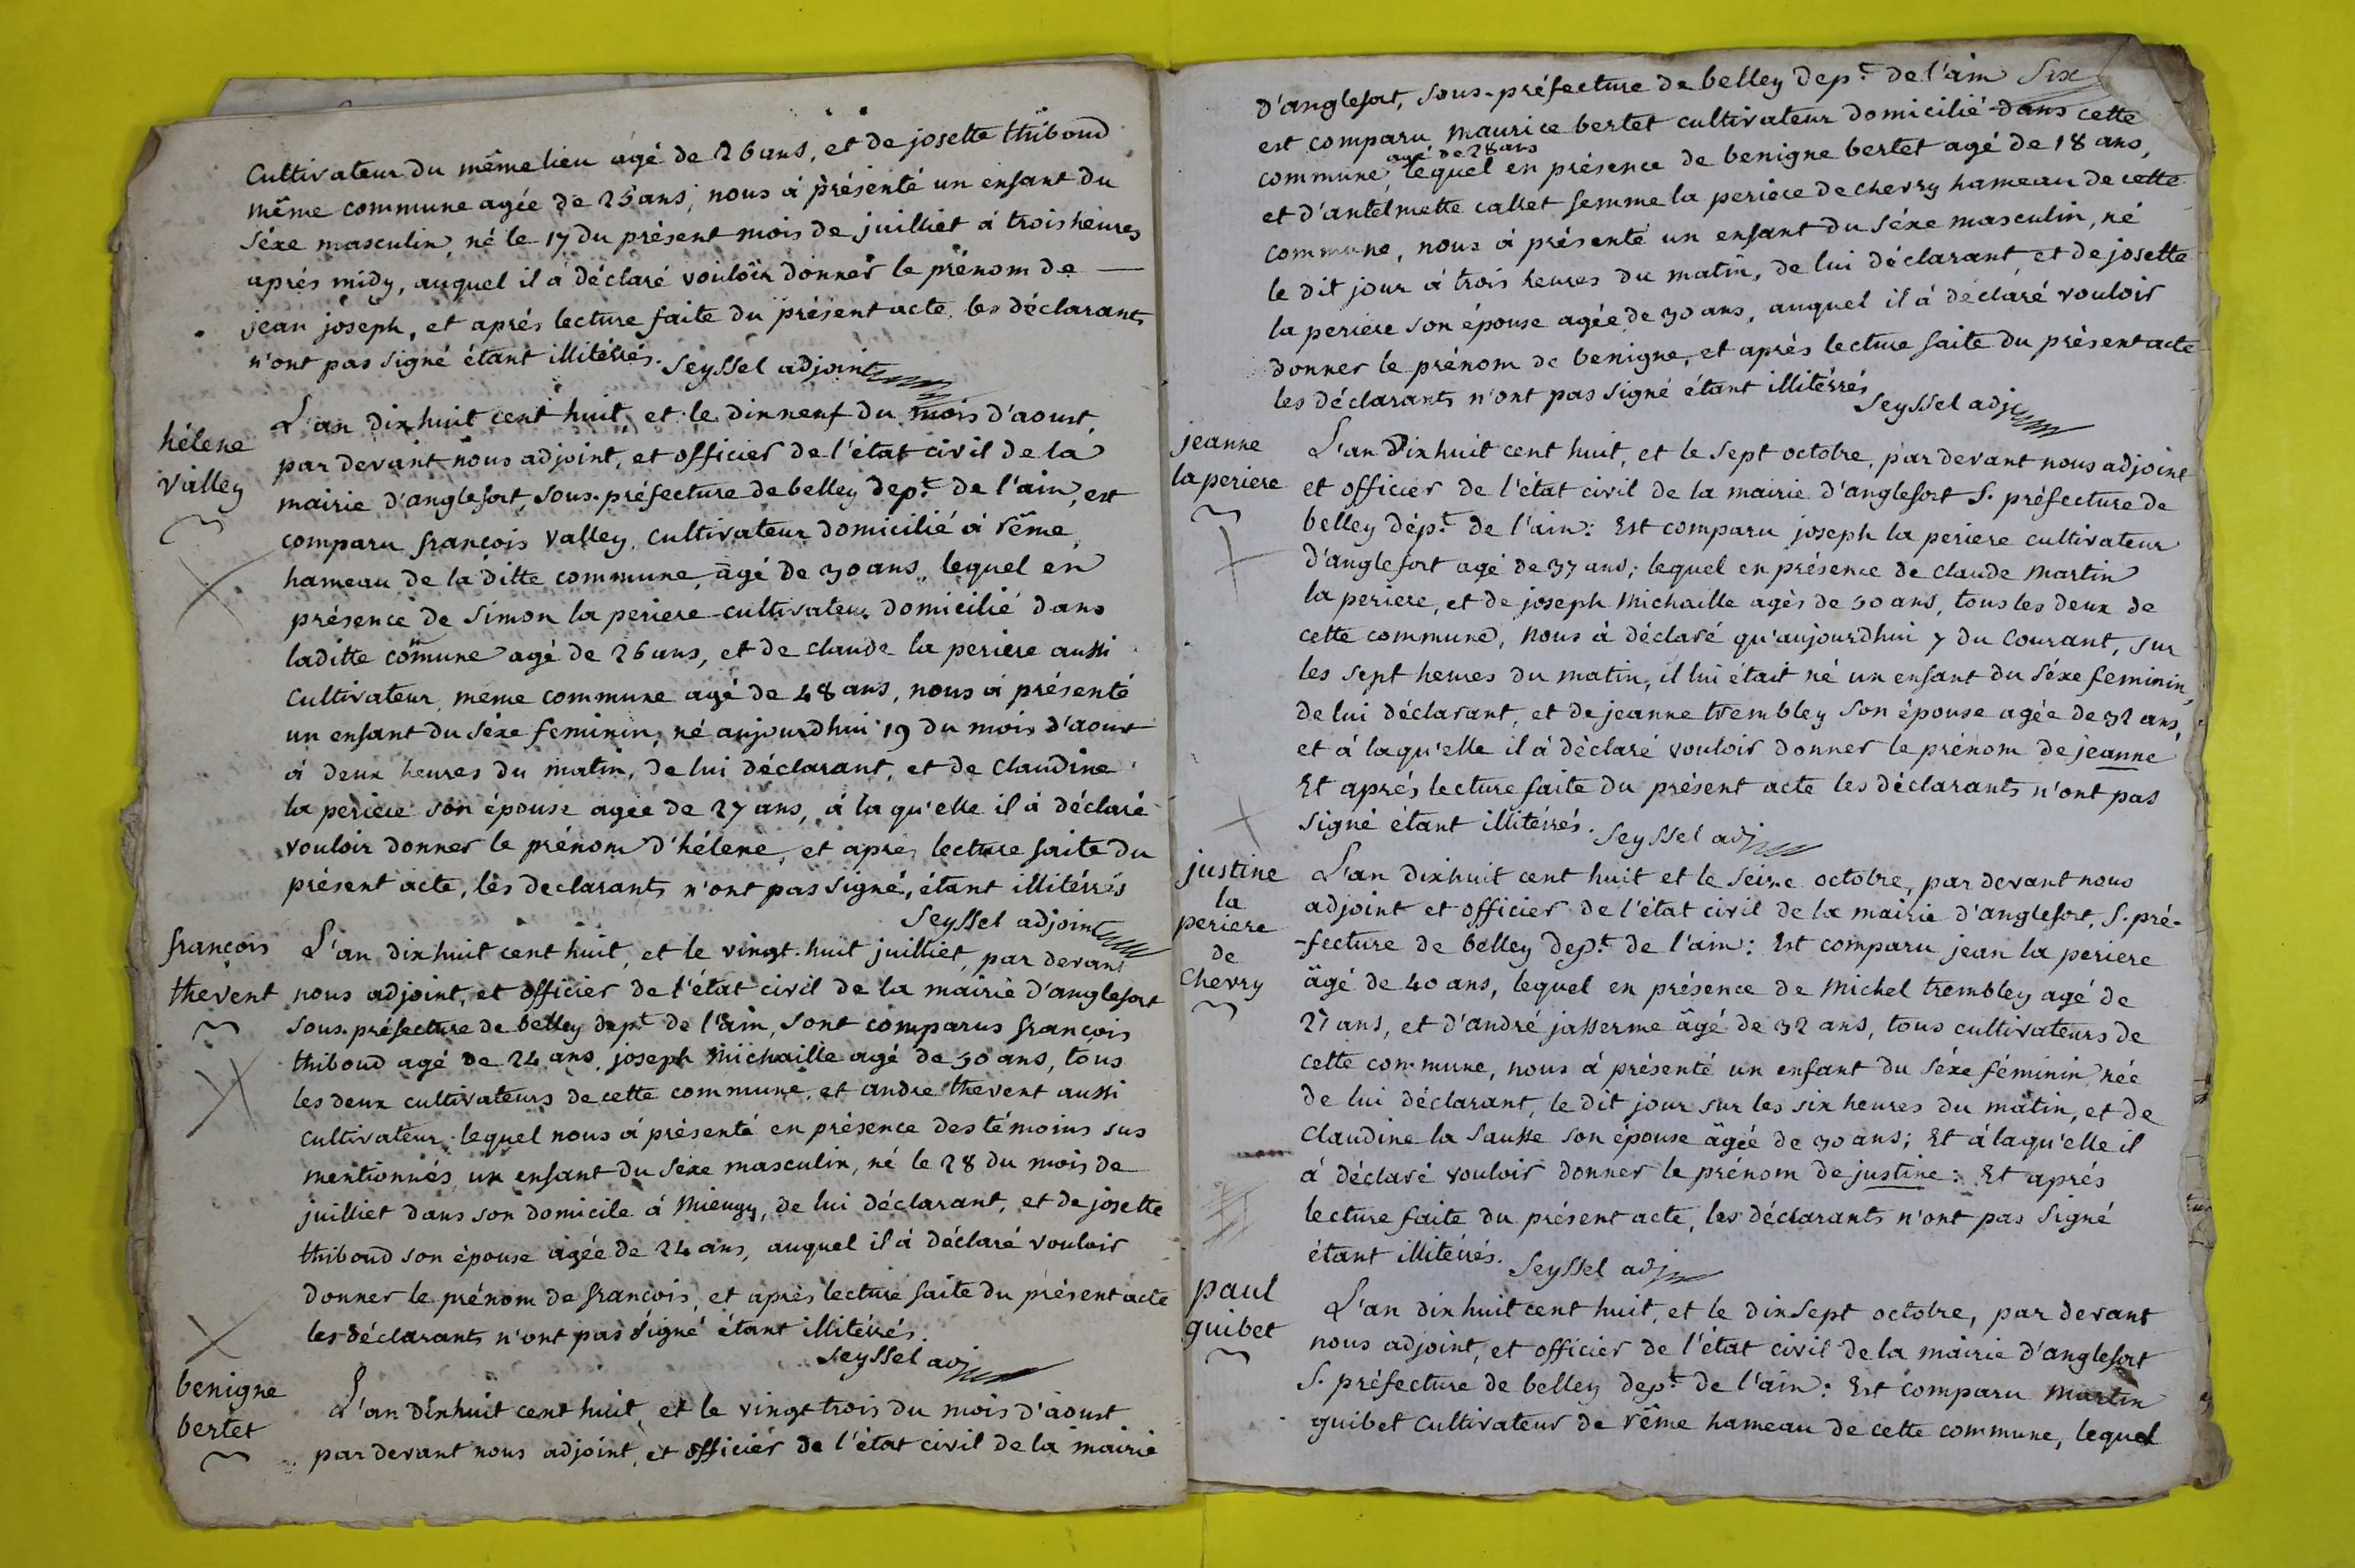 Cultivateur du même lieu agé de 26 ans, et de josette thiboud
même commune agée de 25 ans, nous à présenté un enfant du
séxe masculin, né le 17 du présent mois de juilliet à trois heures
aprés midy, auquel il à déclaré vouloir donner le prénom de —
jean joseph, et aprés lecture faite du présent acte, les déclarants
n'ont pas signé étant illitérrés. Seyssel adjoint
hélene
valley
L'an dix huit cent huit, et le dix neuf du mois d'aoust,
par devant nous adjoint, et officier de l'état civil de la
mairie d'anglefort, sous-préfecture de belley dept. de l'ain, est
comparu françois valley, cultivateur domicilié à rême
hameau de la ditte commune, âgé de 30 ans, lequel en
présence de Simon la periere cultivateur domicilié dans
laditte comune agé de 26 ans, et de claude la periere aussi
Cultivateur, même commune agé de 48 ans, nous à présenté
un enfant du séxe feminin, né aujourdhui 19 du mois d'aoust
à deux heures du matin, de lui déclarant, et de claudine
la periere son épouse agée de 27 ans, à laqu'elle il à déclaré
vouloir donner le prénom d'hélene, et aprés lecture faite du
présent acte, les declarants n'ont pas signé, étant illitérrés
Seyssel adjoint
françois
thevent
L'an dix huit cent huit, et le vingt-huit juilliet, par devant
nous adjoint, et officier de l'état civil de la mairie d'anglefort
sous-préfecture de belley dept. de l'ain, sont comparus françois
thiboud agé de 24 ans, joseph Michaille agé de 30 ans, tous
les deux cultivateurs de cette commune, et andre thevent aussi
cultivateur, lequel nous à présenté en présence des témoins sus
mentionnés, un enfant du séxe masculin, né le 28 du mois de
juilliet dans son domicile à Mieugy, de lui déclarant, et de josette
thiboud son épouse agée de 24 ans, auquel il à déclaré vouloir
donner le prénom de françois, et aprés lecture faite du présent acte
les déclarants n'ont pas signé étant illitérrés.
Seyssel adj
benigne
bertet
L'an dix huit cent huit, et le vingt trois du mois d'aoust
par devant nous adjoint, et officier de l'état civil de la mairie
d'anglefort, sous-préfecture de belley dept. de l'ain Six
est comparu maurice bertet cultivateur domicilié dans cette
agé de 28 ans
commune, lequel en présence de benigne bertet agé de 18 ans,
et d'antelmette callet femme la periere de chevry hameau de cette
commune, nous à présenté un enfant du séxe masculin, né
le dit jour à trois heures du matin, de lui déclarant, et de josette
la periere son épouse agée de 30 ans, auquel il à déclaré vouloir
donner le prénom de benigne, et aprés lecture faite du présent acte
les déclarants n'ont pas signé étant illitérrés
Seyssel adj
jeanne
la periere
L'an dix huit cent huit, et le sept octobre, par devant nous adjoint
et officier de l'état civil de la mairie d'anglefort S. préfecture de
belley dépt. de l'ain: Est comparu joseph la periere cultivateur
d'anglefort agé de 37 ans; lequel en présence de claude Martin
la periere, et de joseph Michaille agés de 30 ans, tous les deux de
cette commune, nous à déclaré qu'aujourdhui 7 du Courant, sur
les sept heures du matin, il lui était né un enfant du séxe feminin,
de lui déclarant, et de jeanne trembley son épouse agée de 32 ans,
et à laqu'elle il à déclaré vouloir donner le prénom de jeanne
Et aprés lecture faite du présent acte les déclarants n'ont pas
signé étant illitérrés. Seyssel adj
justine
la
periere
de
Chevry
L'an dix huit cent huit et le seize octobre, par devant nous
adjoint et officier de l'état civil de la mairie d'anglefort, S. pré-
-fecture de belley dept. de l'ain: Est comparu jean la periere
âgé de 40 ans, lequel en présence de Michel trembley agé de
27 ans, et d'andré jasserme âgé de 32 ans, tous cultivateurs de
cette commune, nous à présenté un enfant du séxe féminin née
de lui déclarant, le dit jour sur les six heures du matin, et de
Claudine la Sausse son épouse âgée de 30 ans; Et à laqu'elle il
à déclaré vouloir donner le prénom de justine: Et aprés
lecture faite du présent acte, les déclarants n'ont pas signé
étant illitérrés. Seyssel adj
paul
guibet
L'an dix huit cent huit, et le dix sept octobre, par devant
nous adjoint, et officier de l'état civil de la mairie d'anglefort
S. préfecture de belley dept. de l'ain: Est comparu Martin
guibet cultivateur de rême hameau de cette commune, lequel